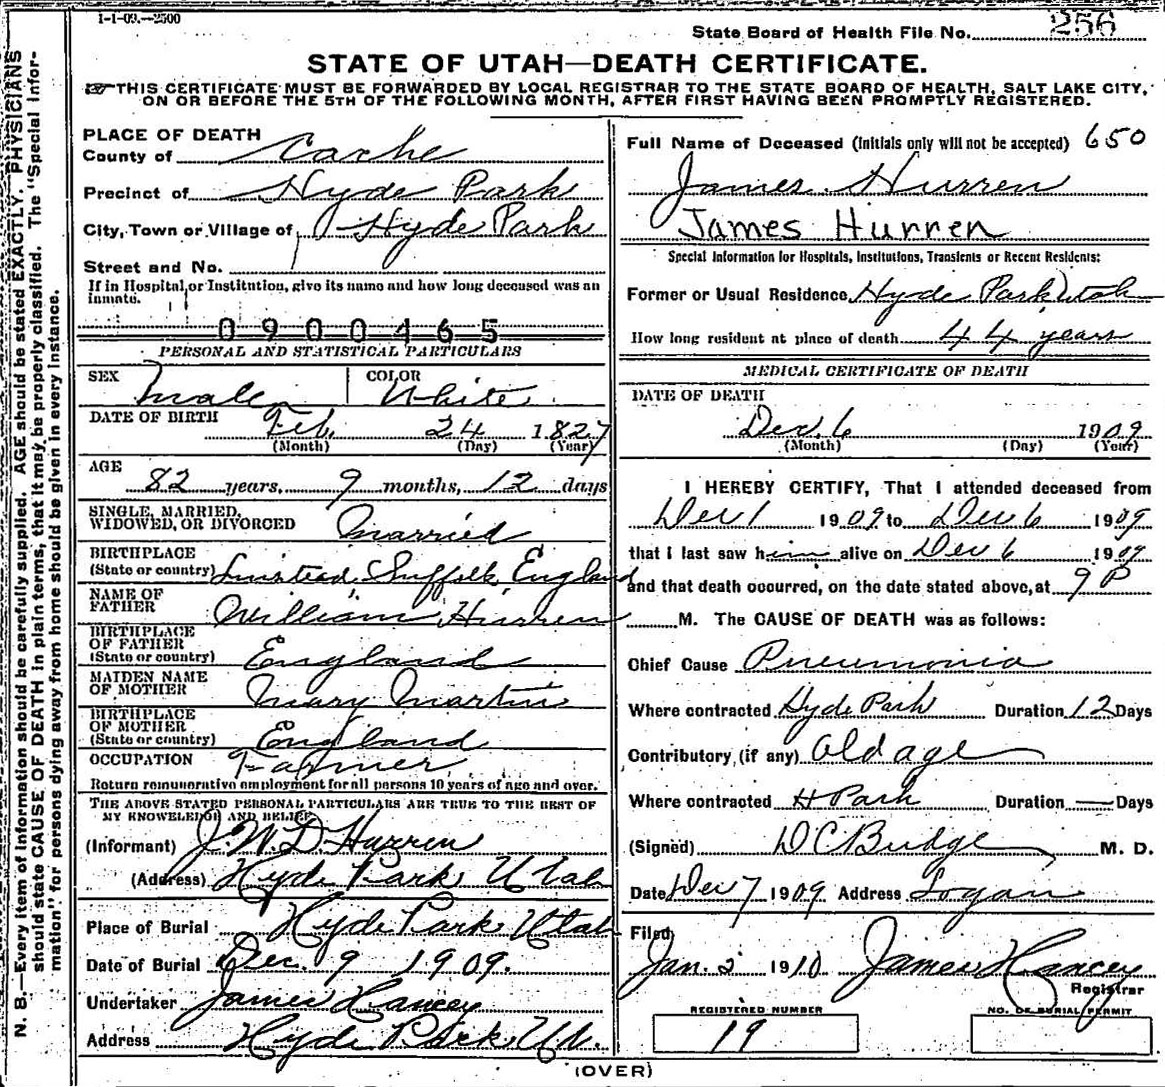 1-1-09.—2500
State Board of Health File No. 256
STATE OF UTAH—DEATH CERTIFICATE.
☞THIS CERTIFICATE MUST BE FORWARDED BY LOCAL REGISTRAR TO THE STATE BOARD OF HEALTH, SALT LAKE CITY,
ON OR BEFORE THE 5TH OF THE FOLLOWING MONTH, AFTER FIRST HAVING BEEN PROMPTLY REGISTERED.
N. B.—Every item of information should be carefully supplied. AGE should be stated EXACTLY. PHYSICIANS
should state CAUSE OF DEATH in plain terms, that it may be properly classified. The "Special Infor-
mation" for persons dying away from home should be given in every instance.
PLACE OF DEATH
County of Cache
Precinct of Hyde Park
City, Town or Village of Hyde Park
Street and No.
If in Hospital or Institution, give its name and how long deceased was an
inmate.
0900465
PERSONAL AND STATISTICAL PARTICULARS
SEX Male COLOR White
DATE OF BIRTH Feb. 24 1827
(Month) (Day) (Year)
AGE
82 years, 9 months, 12 days
SINGLE, MARRIED,
WIDOWED, OR DIVORCED Married
BIRTHPLACE
(State or country) Linstead Suffolk England
NAME OF
FATHER William Hurren
BIRTHPLACE
OF FATHER
(State or country) England
MAIDEN NAME
OF MOTHER Mary Martin
BIRTHPLACE
OF MOTHER
(State or country) England
OCCUPATION Farmer
Return remunerative employment for all persons 10 years of age and over.
THE ABOVE STATED PERSONAL PARTICULARS ARE TRUE TO THE BEST OF
MY KNOWELEDGE AND BELIEF
(Informant) J. W. D. Hurren
(Address) Hyde Park Utah
Place of Burial Hyde Park Utah
Date of Burial Dec. 9 1909.
Undertaker James Hancey
Address Hyde Park, Ut.
Full Name of Deceased (Initials only will not be accepted) 650
James Hurren
James Hurren
Special Information for Hospitals, Institutions, Transients or Recent Residents:
Former or Usual Residence Hyde Park Utah
How long resident at place of death 44 years
MEDICAL CERTIFICATE OF DEATH
DATE OF DEATH
Dec. 6 1909
(Month) (Day) (Year)
I HEREBY CERTIFY, That I attended deceased from
Dec 1 1909 to Dec 6 1909
that I last saw him alive on Dec 6 1909
and that death occurred, on the date stated above, at 9 P
M. The CAUSE OF DEATH was as follows:
Chief Cause Pneumonia
Where contracted Hyde Park Duration 12 Days
Contributory (if any) Old age
Where contracted H Park Duration — Days
(Signed) D C Budge M. D.
Date Dec 7 1909 Address Logan
Filed
Jan. 2 1910 James Hancey
Registrar
REGISTERED NUMBER
19
NO. OF BURIAL PERMIT
(OVER)